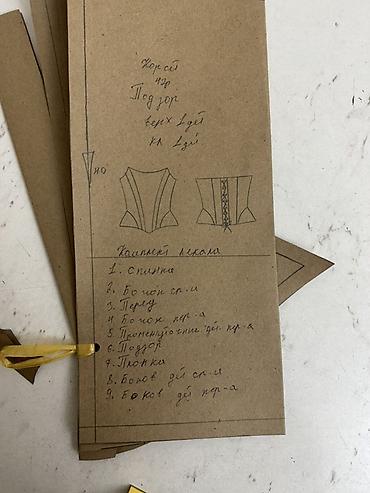 Корсет
42р
Подзор
верх 1 дет
кл 1 дет
НО
Комплект лекала
1. Спинка
2. Бочок сп-и
3. Перед
4. Бочок пер-а
5. Промежуточние дет. пер-а
6. Подзор
7. Планка
8. Боков дет сп-и
9. Боков дет пер-а